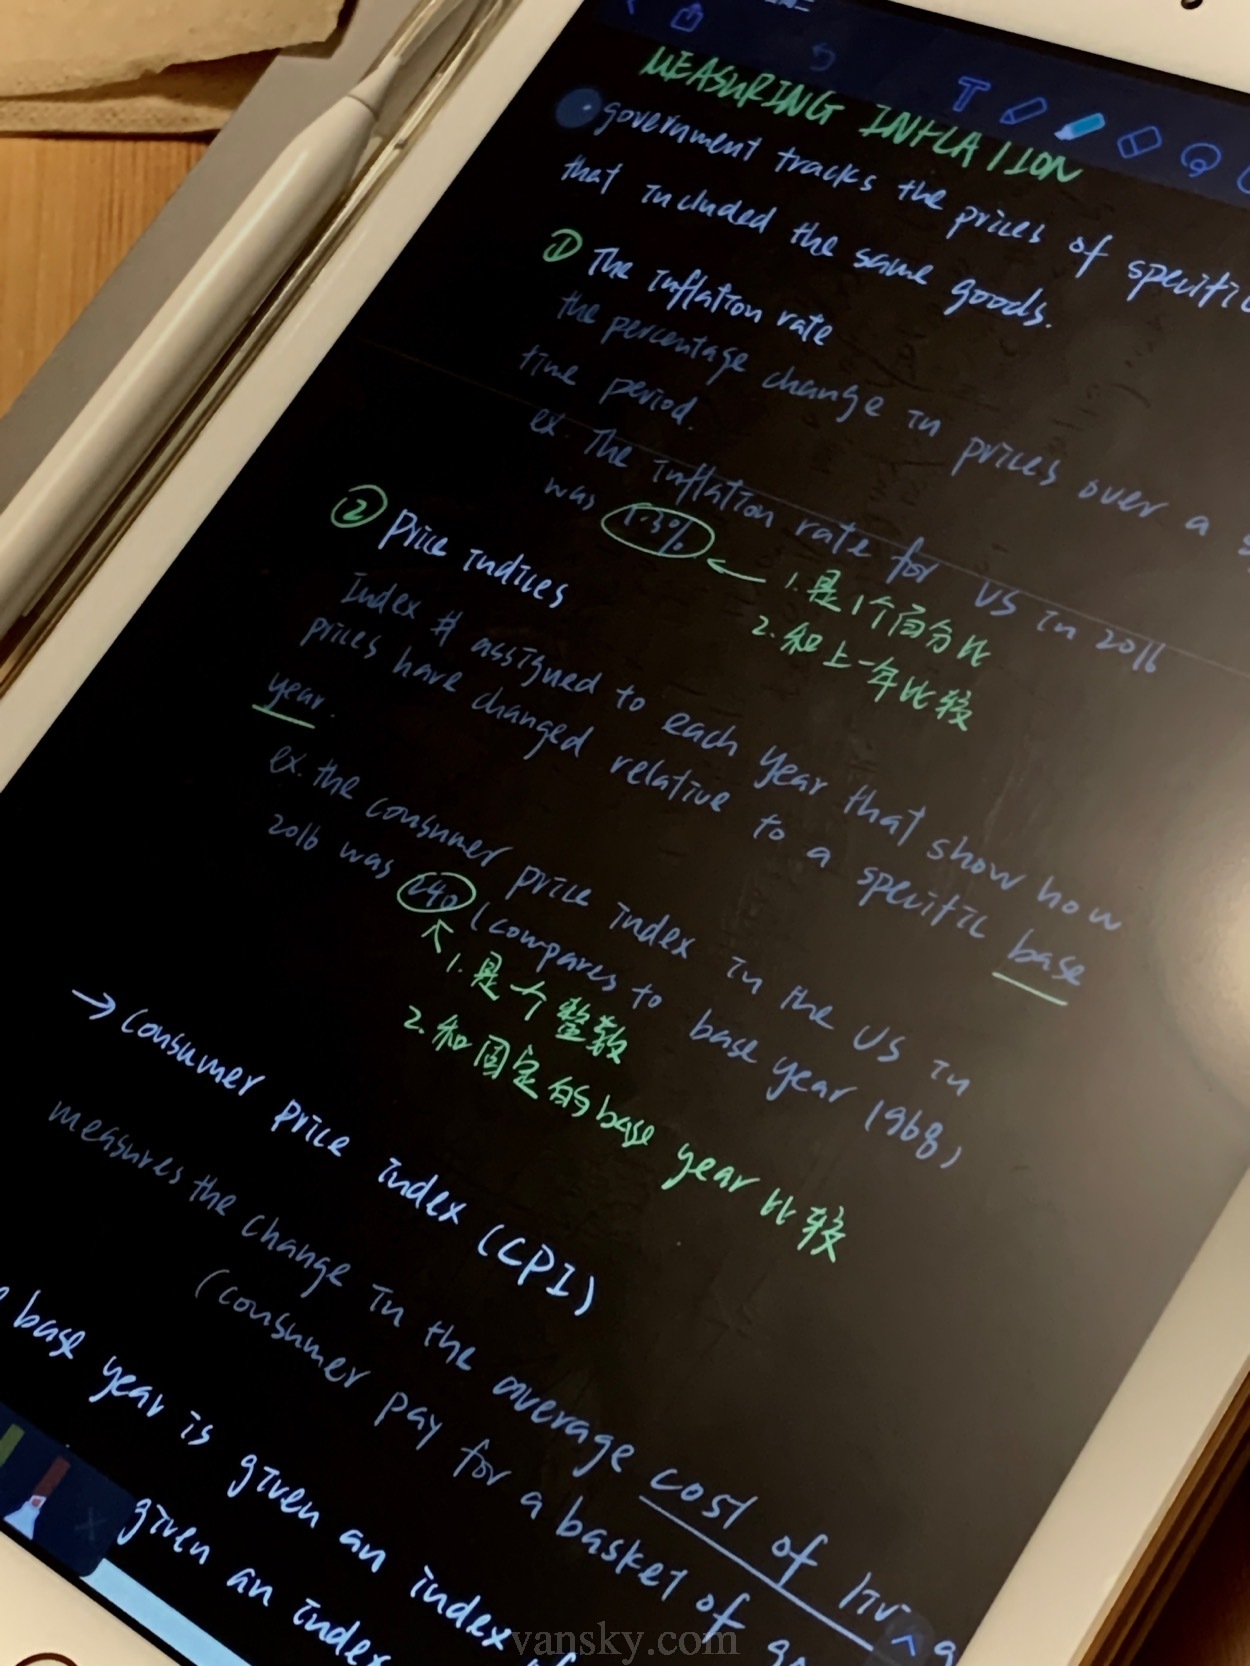 MEASURING INFLATION
government tracks the prices of specific
that included the same goods.
① The inflation rate
the percentage change in prices over a
time period.
ex. The inflation rate for US in 2016
was 1.3%
← 1. 是1个百分比
2. 和上一年比较
② Price indices
Index # assigned to each year that show how
prices have changed relative to a specific base
year.
ex. the consumer price index in the US in
2016 was 240 (compares to base year 1968)
↑ 1. 是个整数
2. 和固定的base year比较
→ Consumer price index (CPI)
measures the change in the average cost of
(consumer pay for a basket of
base year is given an index
given an index
vansky.com